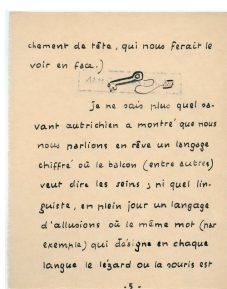 chement de tête, qui nous ferait le
voir en face.)
je ne sais plus quel sa-
vant autrichien a montré que nous
nous parlions en rêve un langage
chiffré où le balcon (entre autres)
veut dire les seins ; ni quel lin-
guiste, en plein jour un langage
d'allusions où le même mot (par
exemple) qui désigne en chaque
langue le lézard ou la souris est
- 5 -